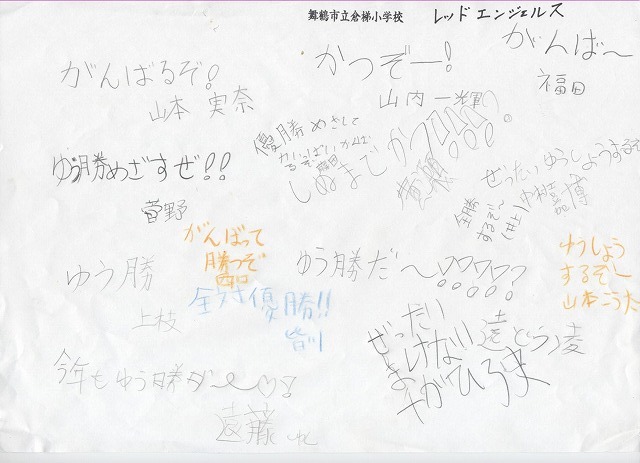 舞鶴市立倉梯小学校 レッドエンジェルス
がんばるぞ!
山本 実奈
かつぞー!
山内一輝
がんば〜
福田
優勝めざして
しぬまでかつ!!!!
ゆう勝めざすぜ!!
菅野
ぜったいゆうしょうするぞ
中村
全勝
するぞ〜
がんばって
勝つぞ
西口
ゆう勝
上枝
全力で優勝!!
皆川
ゆう勝だ〜!?!?!?
ゆうしょう
するぞー
山本こうた
ぜったい
まけない
遠とう凌
今年もゆう勝ダー♡!
遠藤